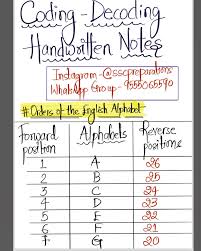 Coding-Decoding
Handwritten Notes
Instagram-@sscpreparations
WhatsApp Group- 9555065590
# Orders of the English Alphabet
Forward position Alphabets Reverse positions
1 A 26
2 B 25
3 C 24
4 D 23
5 E 22
6 F 21
7 G 20